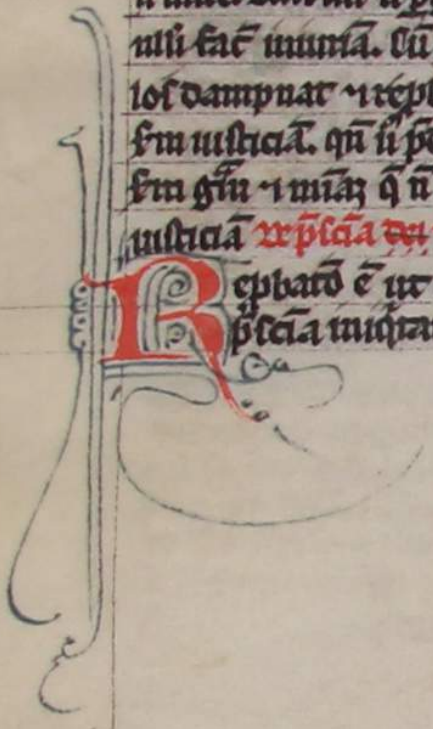 nlli fac̄ iniuriā. Cū
los dampnat ⁊ repb
s̄m iusticiā. qn̄ ū
s̄m gr̄m ⁊ miāꝫ q̄ n̄
iusticiā p̄sciā dei
Rep̱batō ē̄ ut
p̄sciā iniq̇ta